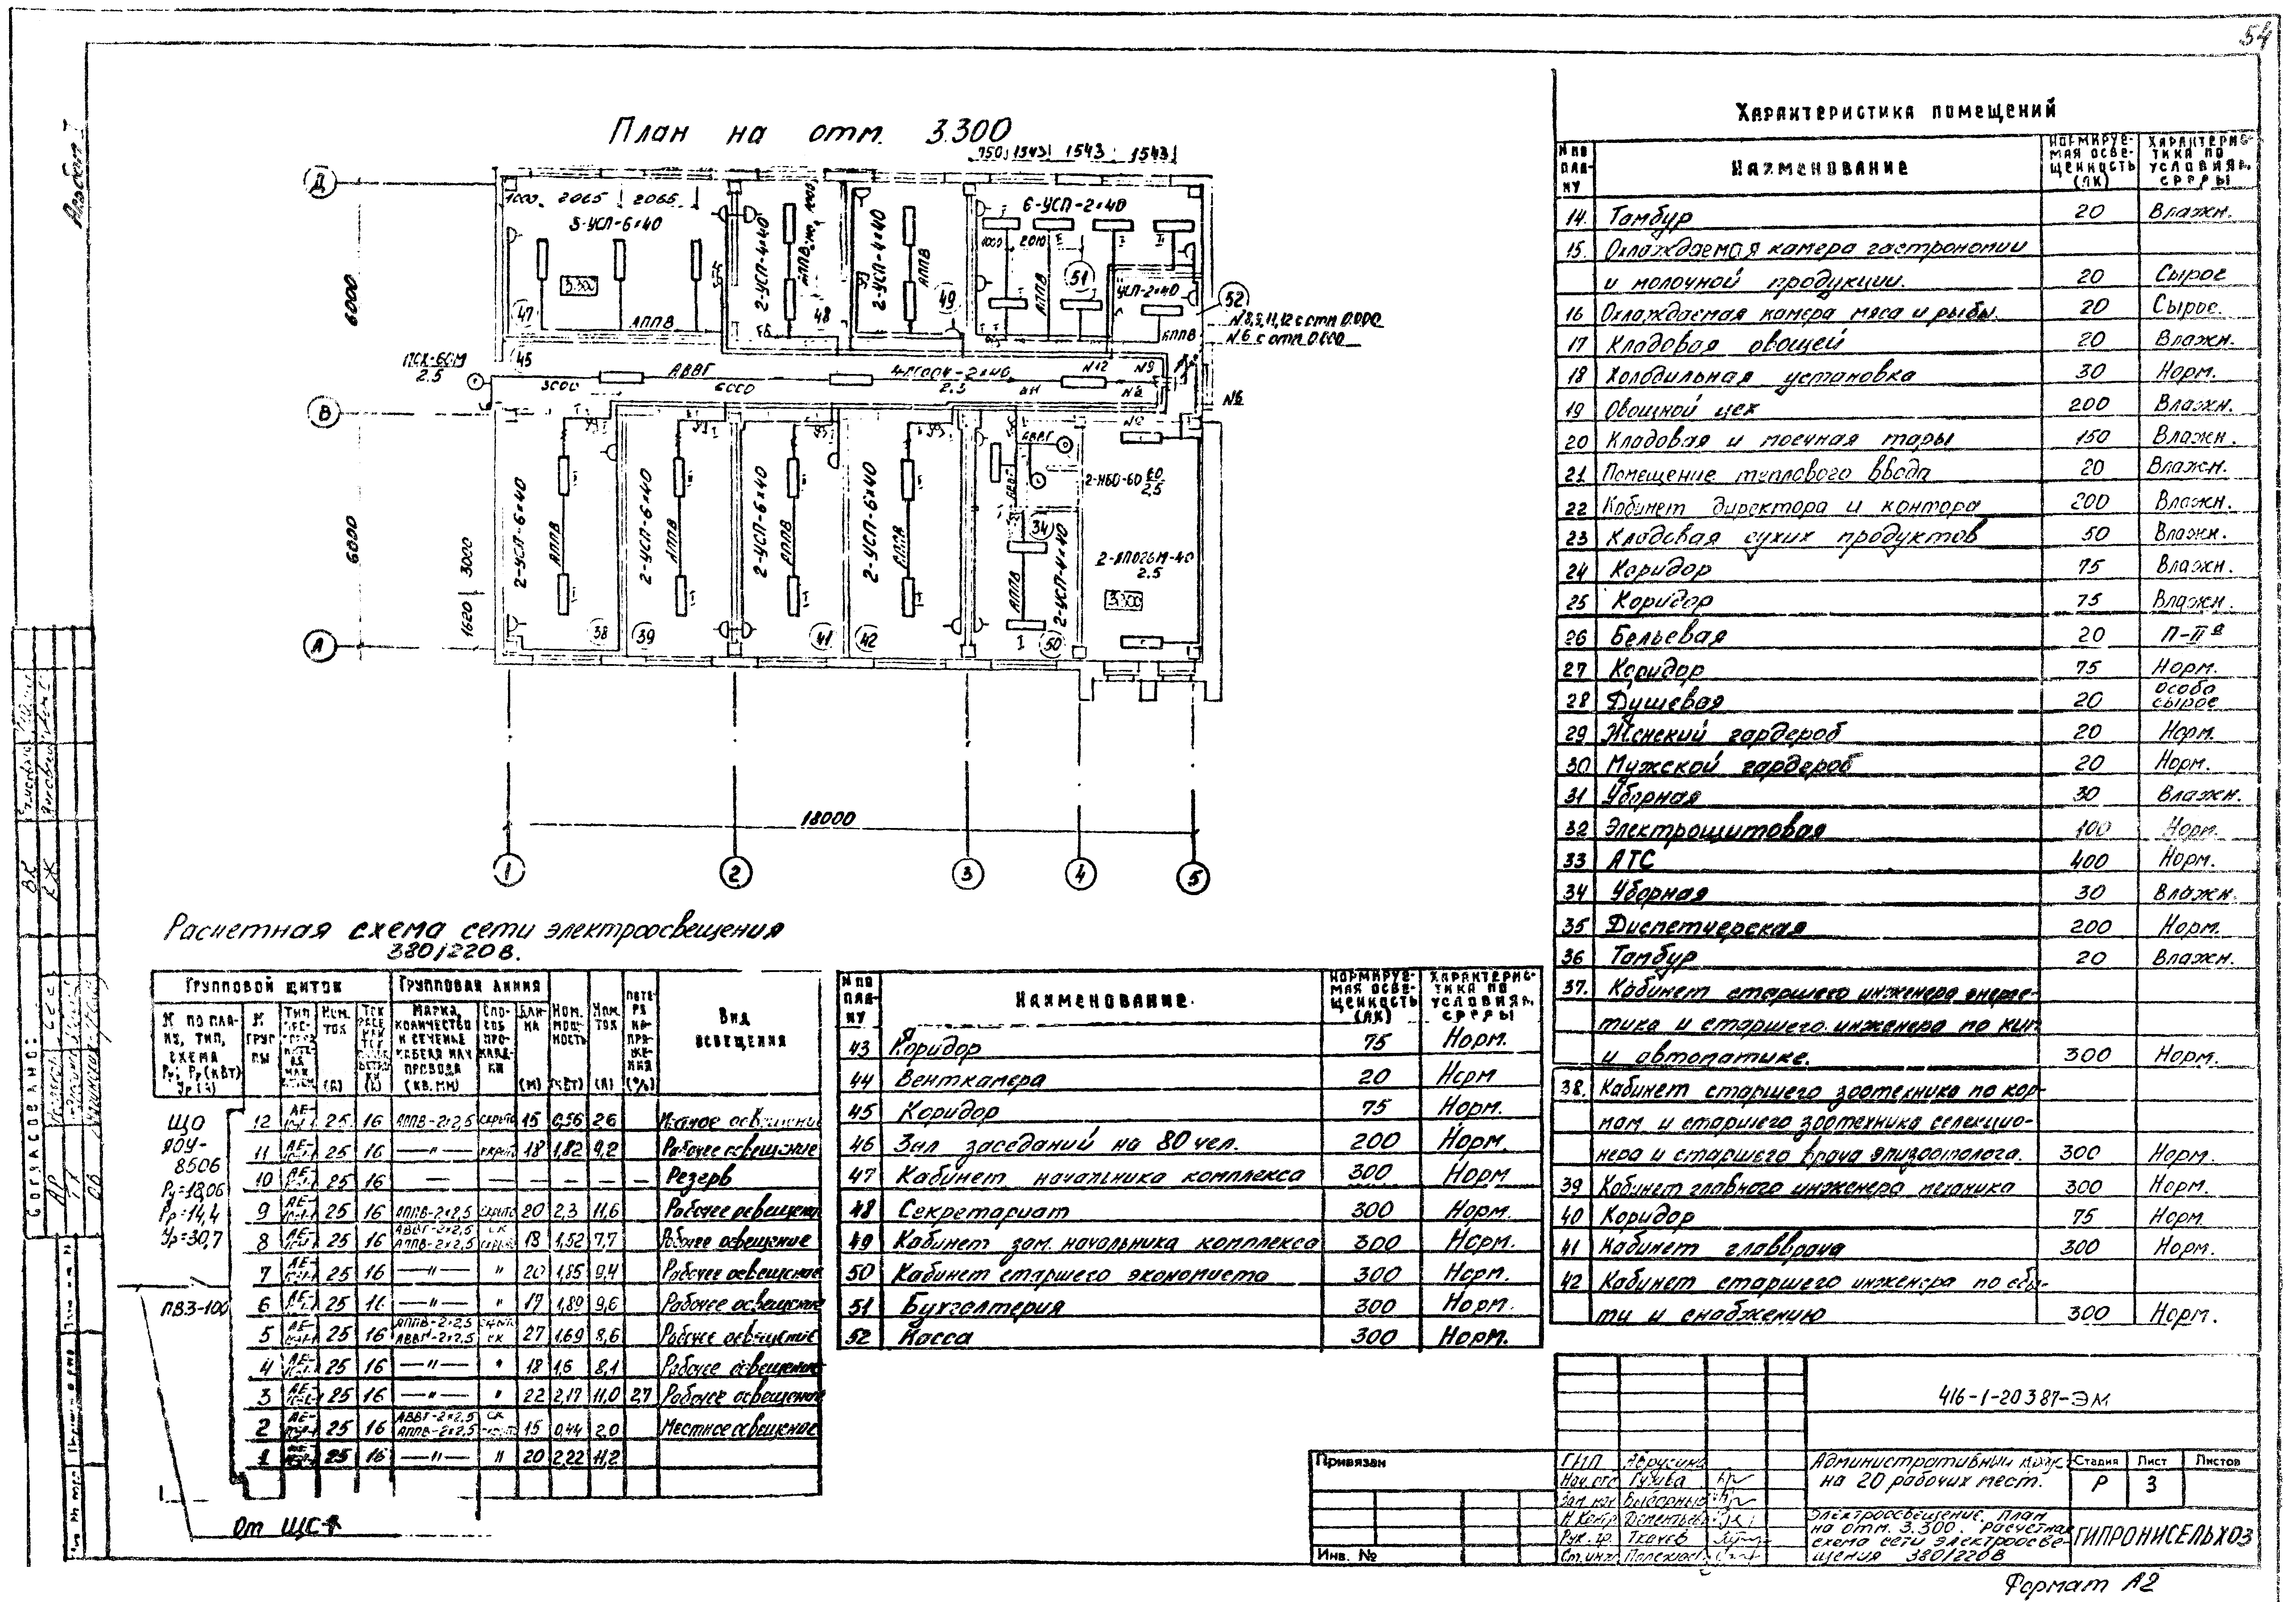 54
Альбом I
План на отм. 3.300
750 1543 1543 1543
Д
1000 2065 2065
3-УСП-6×40
2-УСП-4×40
2-УСП-4×40
6-УСП-2×40
1000 2010
АППВ
АППВ
АППВ
УСП-2×40
АППВ
АППВ
3.300
47
48
49
51
52
6000
N8,9,11,12 с отм 0.000
N6 с отм 0.000
45
ПСХ-60М
2.5
3000
АВВГ
6000
2.5
N12
N9
N8
N6
В
6000
3000
1620
2-УСП-6×40
АППВ
2-УСП-6×40
АППВ
2-УСП-6×40
АППВ
2-УСП-6×40
АППВ
АВВГ
2-НБО-60 60
2.5
34
АППВ
2-УСП-4×40
2.5
3.300
38
39
41
42
50
А
18000
1
2
3
4
5
Расчетная схема сети электроосвещения
380/220 В.
Групповой щиток
Групповая линия
N по пла-
ну, тип,
схема
Ру; Рр (кВт)
N
груп
пы
Ном.
ток
(А)
Марка,
количество
и сечение
кабеля или
провода
(кв. мм)
Спо-
соб
про-
клад-
ки
Дли-
на
(м)
Ном.
мощ-
ность
(кВт)
Ном.
ток
(А)
Поте-
ря
на-
пря-
же-
ния
(%)
Вид
освещения
ЩО
ЯОУ-
8506
Ру=18,06
Рр=14,4
Ур=30,7
ПВ3-100
От ЩС-1
12 АЕ- 25 16 АППВ-2×2,5 скрыто 15 0,56 2,6 Местное освещение
11 АЕ- 25 16 —"— скрыто 18 1,82 9,2 Рабочее освещение
10 АЕ- 25 16 — — — — — — Резерв
9 АЕ- 25 16 АППВ-2×2,5 скрыто 20 2,3 11,6 Рабочее освещение
8 АЕ- 25 16 АВВГ-2×2,5 АППВ-2×2,5 ск скрыто 18 1,52 7,7 Рабочее освещение
7 АЕ- 25 16 —"— " 20 1,85 9,4 Рабочее освещение
6 АЕ- 25 16 —"— " 17 1,89 9,6 Рабочее освещение
5 АЕ- 25 16 АППВ-2×2,5 АВВГ-2×2,5 скрыто ск 27 1,69 8,6 Рабочее освещение
4 АЕ- 25 16 —"— " 18 1,6 8,1 Рабочее освещение
3 АЕ- 25 16 —"— " 22 2,17 11,0 2,7 Рабочее освещение
2 АЕ- 25 16 АВВГ-2×2,5 АППВ-2×2,5 ск скрыто 15 0,44 2,0 Местное освещение
1 25 16 —"— " 20 2,22 11,2
N по
пла-
ну
Наименование.
Нормируе-
мая осве-
щенность
(лк)
Характерис-
тика по
условиям
среды
43 Коридор 75 Норм.
44 Венткамера 20 Норм
45 Коридор 75 Норм.
46 Зал заседаний на 80 чел. 200 Норм.
47 Кабинет начальника комплекса 300 Норм
48 Секретариат 300 Норм.
49 Кабинет зам. начальника комплекса 300 Норм.
50 Кабинет старшего экономиста 300 Норм.
51 Бухгалтерия 300 Норм.
52 Касса 300 Норм.
Характеристика помещений
N по
пла-
ну
Наименование
Нормируе-
мая осве-
щенность
(лк)
Характерис-
тика по
условиям
среды
14. Тамбур 20 Влажн.
15. Охлаждаемая камера гастрономии
и молочной продукции. 20 Сырое
16 Охлаждаемая камера мяса и рыбы. 20 Сырое.
17 Кладовая овощей 20 Влажн.
18 Холодильная установка 30 Норм.
19 Овощной цех 200 Влажн.
20 Кладовая и моечная тары 150 Влажн.
21 Помещение теплового ввода 20 Влажн.
22 Кабинет директора и контора 200 Влажн.
23 Кладовая сухих продуктов 50 Влажн.
24 Коридор 75 Влажн.
25 Коридор 75 Влажн.
26 Бельевая 20 П-IIа
27 Коридор 75 Норм.
28 Душевая 20 особо сырое
29 Женский гардероб 20 Норм.
30 Мужской гардероб 20 Норм.
31 Уборная 30 Влажн.
32 Электрощитовая 100 Норм.
33 АТС 400 Норм.
34 Уборная 30 Влажн.
35 Диспетчерская 200 Норм.
36 Тамбур 20 Влажн.
37. Кабинет старшего инженера энерге-
тика и старшего инженера по кип
и автоматике. 300 Норм.
38. Кабинет старшего зоотехника по кор-
мам и старшего зоотехника селекцио-
нера и старшего врача эпизоотолога. 300 Норм.
39 Кабинет главного инженера механика 300 Норм.
40 Коридор 75 Норм
41 Кабинет главврача 300 Норм.
42 Кабинет старшего инженера по сбы-
ту и снабжению 300 Норм.
416-1-203 87-ЭМ
Привязан
Инв. №
ГИП
Нач. отд Гузива
Зам. нач Выборный
Н. Контр Дементьева
Рук. гр. Ткачев
Ст. инж
Административный корпус
на 20 рабочих мест.
Стадия Лист Листов
Р 3
Электроосвещение. План
на отм. 3.300. Расчетная
схема сети электроосве-
щения 380/220 В
ГИПРОНИСЕЛЬХОЗ
Формат А2
Согласовано:
АР
ТХ
ОВ
ВК
КЖ